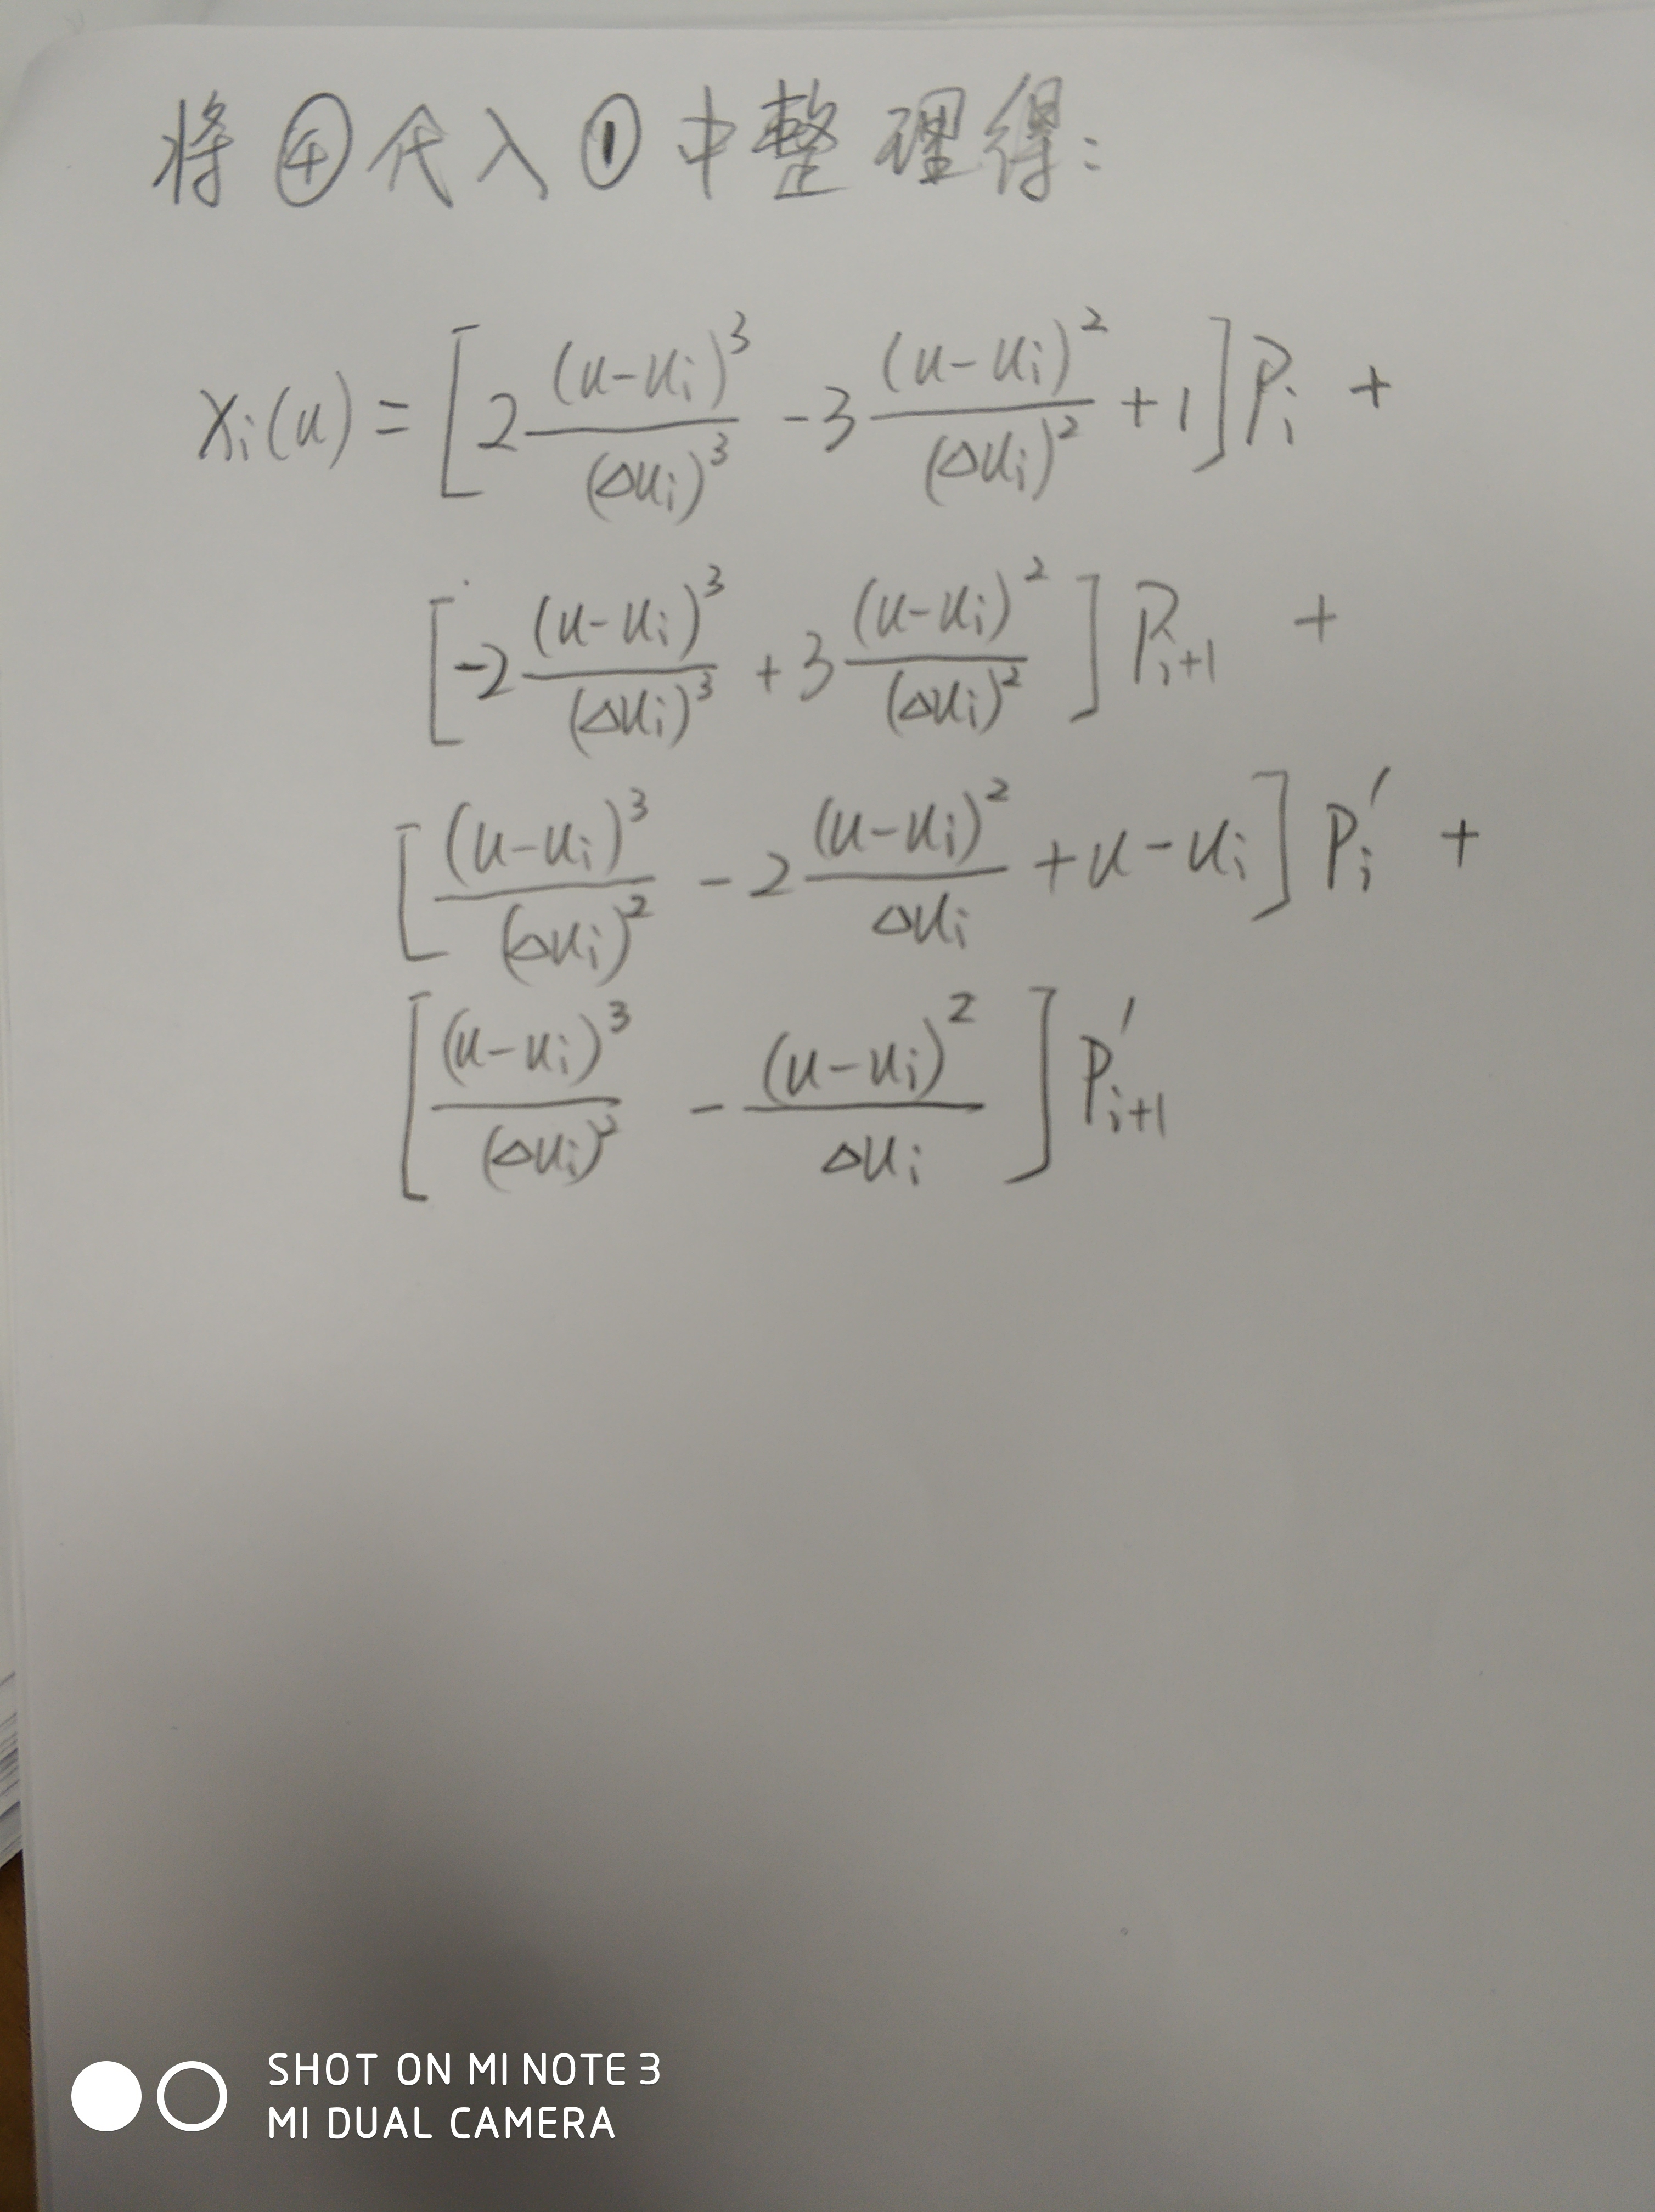 将④代入①中整理得:
Xi(u) = [2 (u-ui)³/(Δui)³ - 3 (u-ui)²/(Δui)² + 1] Pi +
[-2 (u-ui)³/(Δui)³ + 3 (u-ui)²/(Δui)²] Pi+1 +
[(u-ui)³/(Δui)² - 2 (u-ui)²/Δui + u - ui] Pi′ +
[(u-ui)³/(Δui)² - (u-ui)²/Δui] P′i+1
SHOT ON MI NOTE 3
MI DUAL CAMERA